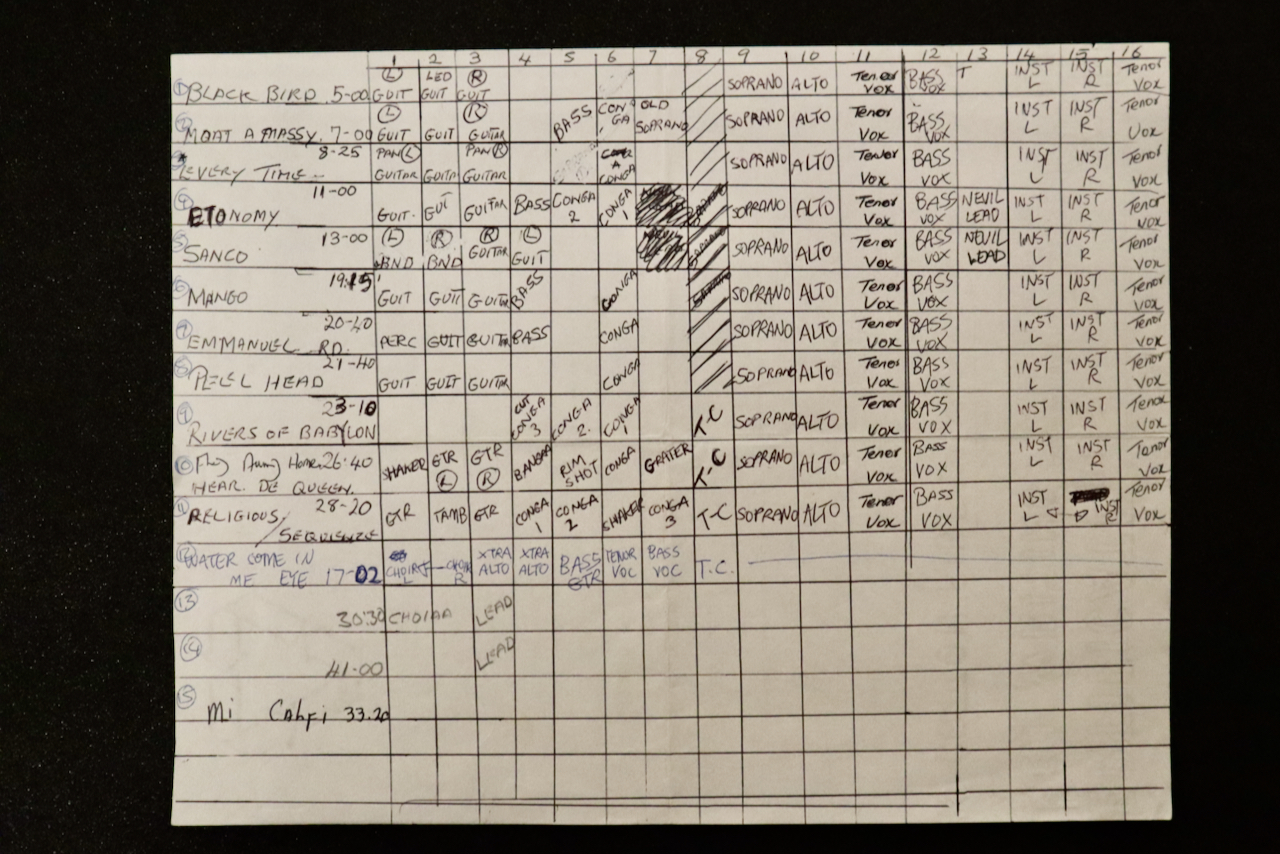 1 2 3 4 5 6 7 8 9 10 11 12 13 14 15 16
① BLACK BIRD 5-00 (L) GUIT LED GUIT (R) GUIT SOPRANO ALTO Tenor Vox BASS VOX T INST L INST R Tenor Vox
② MOAT A MASSY. 7-00 (L) GUIT GUIT (R) GUITAR BASS CONGA OLD SOPRANO SOPRANO ALTO Tenor Vox BASS VOX INST L INST R Tenor Vox
EVERY TIME - 8-25 PAN (L) GUITAR GUITAR PAN (R) GUITAR CONGA SOPRANO ALTO Tenor Vox BASS VOX INST L INST R Tenor Vox
④ ETONOMY 11-00 GUIT. GUT GUITAR BASS CONGA 2 CONGA 1 SOPRANO ALTO Tenor Vox BASS VOX NEVIL LEAD INST L INST R Tenor Vox
⑤ SANCO 13-00 (L) BND (R) BND (R) GUITAR (L) GUIT SOPRANO ALTO Tenor Vox BASS VOX NEVIL LEAD INST L INST R Tenor Vox
⑥ MANGO 19.15 GUIT GUIT GUITAR BASS CONGA SOPRANO ALTO Tenor Vox BASS VOX INST L INST R Tenor Vox
⑦ EMMANUEL RD. 20-40 PERC GUIT GUITAR BASS CONGA SOPRANO ALTO Tenor Vox BASS VOX INST L INST R Tenor Vox
⑧ PEEL HEAD 21-40 GUIT GUIT GUITAR CONGA SOPRANO ALTO Tenor Vox BASS VOX INST L INST R Tenor Vox
⑨ RIVERS OF BABYLON 23-10 CUT CONGA 3 CONGA 2. CONGA 1 T-C SOPRANO ALTO Tenor Vox BASS VOX INST L INST R Tenor Vox
⑩ Home 26.40 HEAR. DE QUEEN. SHAKER GTR (L) GTR (R) RIM SHOT CONGA GRATER T-C SOPRANO ALTO Tenor Vox BASS VOX INST L INST R Tenor Vox
⑪ RELIGIOUS/SEQUENZE 28-20 GTR TAMB GTR CONGA 1 CONGA 2 SHAKER CONGA 3 T-C SOPRANO ALTO Tenor Vox BASS VOX INST L INST R Tenor Vox
⑫ WATER COME IN ME EYE 17-02 CHOIR L CHOIR R XTRA ALTO XTRA ALTO BASS GTR TENOR VOC BASS VOC T.C.
⑬ 30:30 CHOIAA LEAD
⑭ 41-00 LEAD
⑮ Mi 33.20